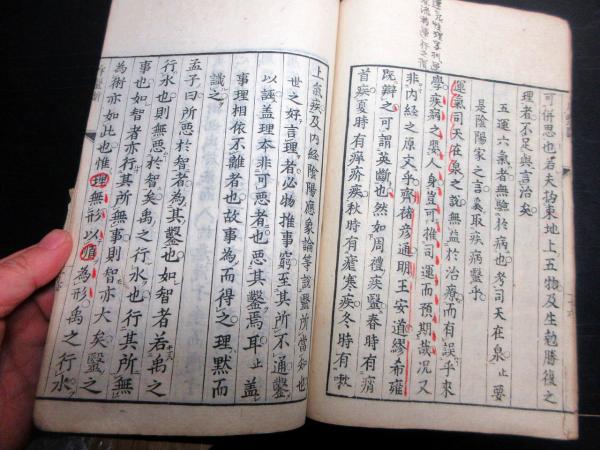 可併思也若夫拘束地上五物及生勉勝復之
理者不足與言治矣
五運六氣者無驗於病也考司天在泉止要
是陰陽家之言奚取疾病毉乎
運氣司天在泉之說無益於治療而有誤乎來
學疾病之嬰人身豈可推司運而預期哉况又
非内經之原文乎齊褚彦通明王安道繆布雍
既辯之可謂英斷也然如周禮疾毉春時有痟
首疾夏時有痒疥疾秋時有瘧寒疾冬時有嗽
上氣疾及内經陰陽應象論等説毉所當知也
世之好言理者必物推事窮至其所不通鑿
以誣蓋理本非可惡者也惡其鑿焉耳止蓋
事理相依不離者也故事為而得之理黙而
識之
孟子曰所惡於智者為其鑿也如智者若禹之
行水也則無惡於智矣禹之行水也行其所無
事也如智者亦行其所無事則智亦大矣毉之
為術亦如此也惟理無形以循為形禹之行水